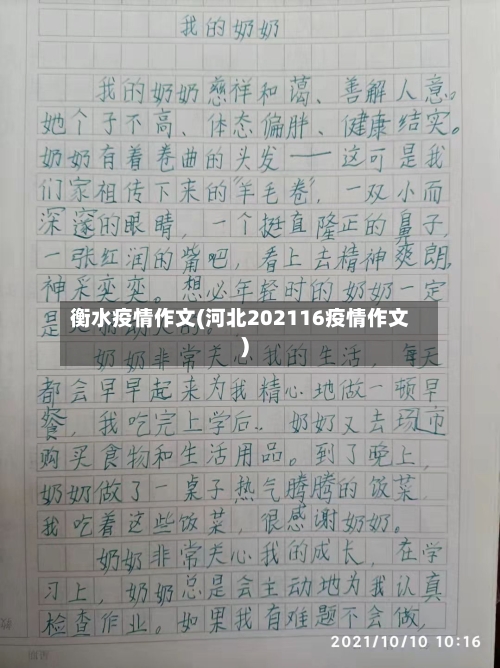 我的奶奶
我的奶奶慈祥和蔼、善解人意。
她个子不高、体态偏胖、健康结实。
奶奶有着卷曲的头发——这可是我
们家祖传下来的“羊毛卷”,一双小而
深邃的眼睛,一个挺直隆正的鼻子,
一张红润的嘴吧,看上去精神爽朗,
神采奕奕。想必年轻时的奶奶一定
是
衡水疫情作文(河北202116疫情作文
)
奶奶非常关心我的生活,每天
都会早早起来为我精心地做一顿早
餐,我吃完上学后,奶奶又去场市
购买食物和生活用品。到了晚上,
奶奶做了一桌子热气腾腾的饭菜,
我吃着这些饭菜,很感谢奶奶。
奶奶非常关心我的成长,在学
习上,奶奶总是会主动地为我认真
检查作业。如果我有难题不会做,
2021/10/10 10:16